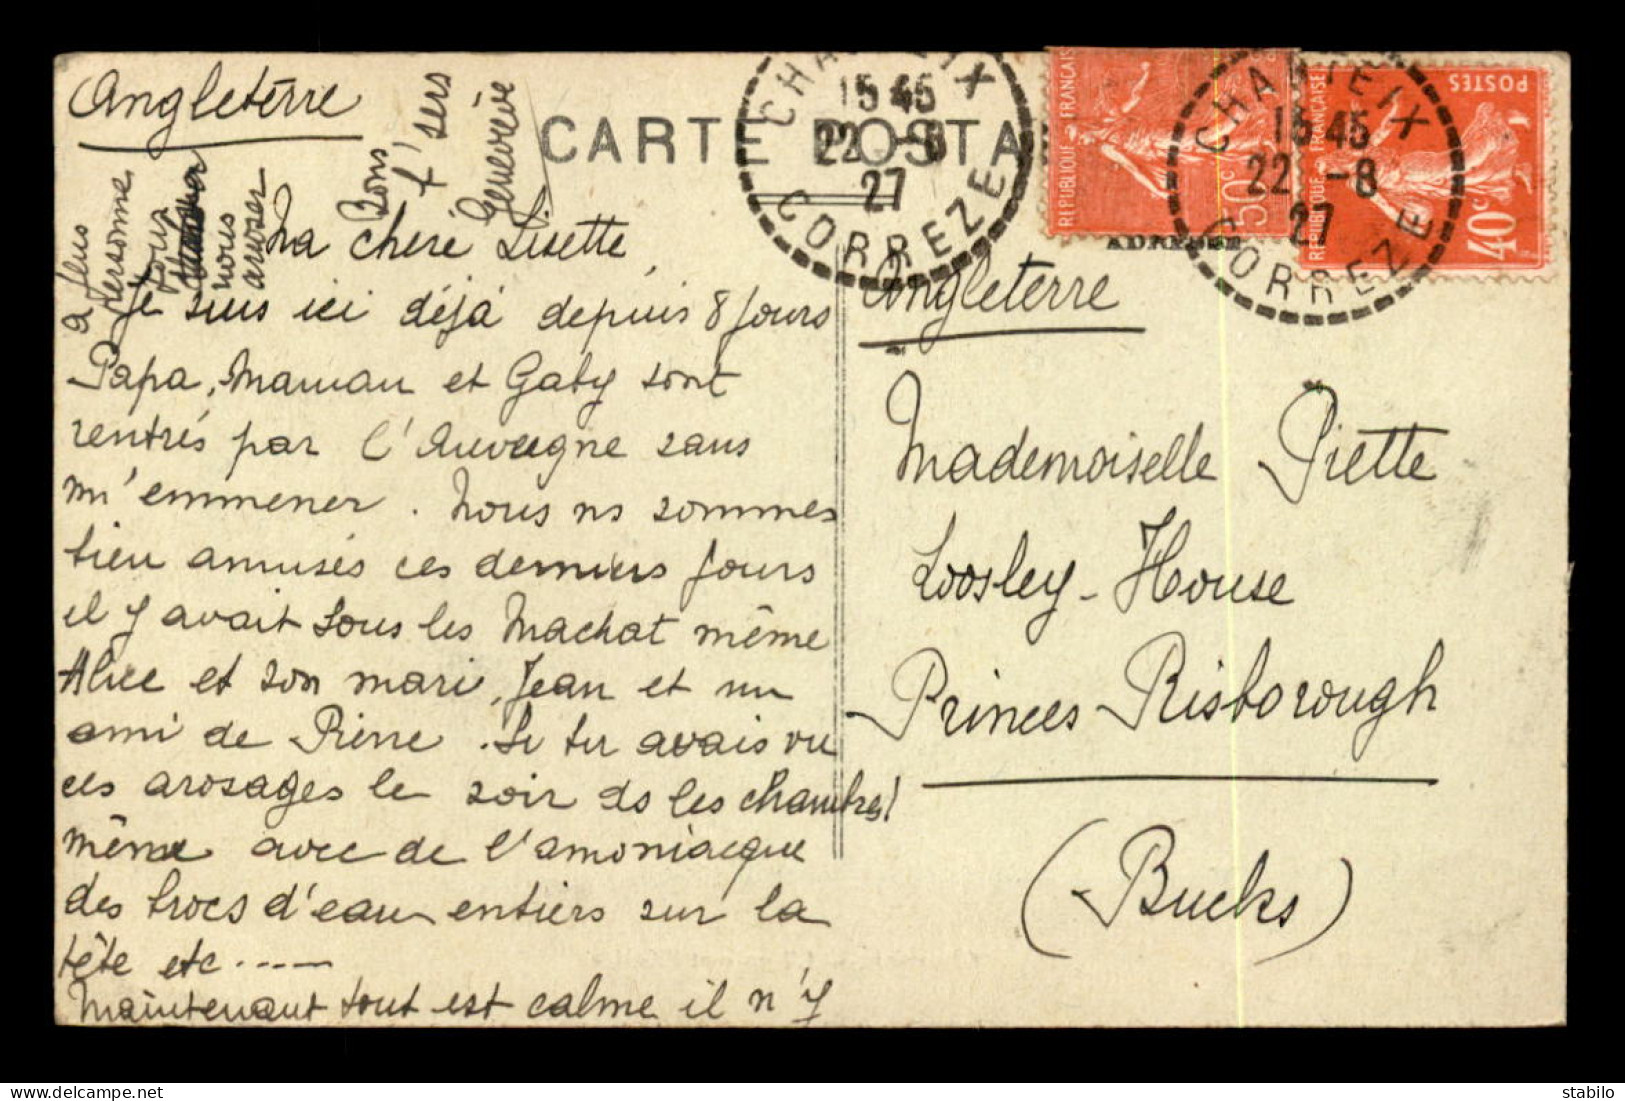 Angleterre
CARTE POSTA
CHA EIX
15 45
22 -8
27
CORREZE
REPUBLIQUE FRANÇAISE
50c
CHARTEIX
15 45
22 -8
27
CORREZE
POSTES
REPUBLIQUE FRANÇAISE
40c
ADRESSE
Ma chère Lisette,
Je suis ici déjà depuis 8 jours
Papa, Maman et Gaby sont
rentrés par l'Auvergne sans
m'emmener. Nous ns sommes
bien amusés ces derniers jours
il y avait tous les Machat même
Alice et son mari, Jean et un
ami de Pierre. Si tu avais vu
ces arosages le soir ds les chambres!
même avec de l'amoniacque
des brocs d'eau entiers sur la
tête etc.----
Maintenant tout est calme il n'y
a plus
personne
pour
nous
aroser
Bons
Geneviève
Angleterre
Mademoiselle Piette
Loosley-House
Princes Risborough
(Bucks)
stabilo